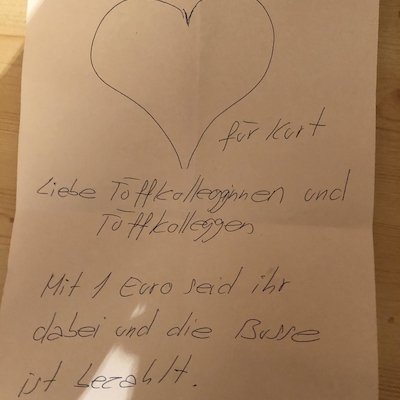 für Kurt
Liebe Töffkolleginnen und
Töffkolleggen
Mit 1 Euro seid ihr
dabei und die Busse
ist bezahlt.